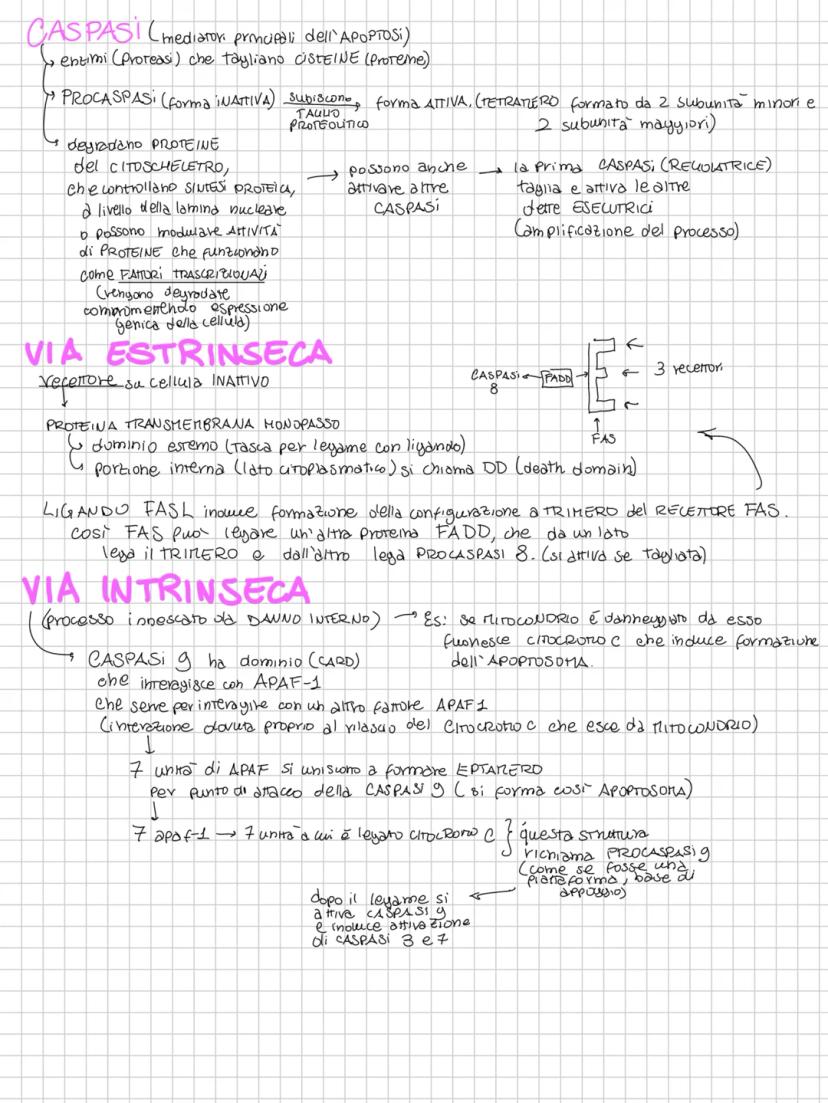 CASPASI (mediatori principali dell'APOPTOSI)
enzimi (proteasi) che tagliano CISTEINE (proteine)
PROCASPASI (forma INATTIVA) subiscono TAGLIO PROTEOLITICO forma ATTIVA. (TETRAMERO formato da 2 subunità minori e
2 subunità maggiori)
degradano PROTEINE
del CITOSCHELETRO,
che controllano SINTESI PROTEICA,
a livello della lamina nucleare
o possono modulare ATTIVITÀ
di PROTEINE che funzionano
come FATTORI TRASCRIZIONALI
(vengono degradate
compromettendo espressione
genica della cellula)
possono anche
attivare altre
CASPASI
la prima CASPASI (REGOLATRICE)
taglia e attiva le altre
dette ESECUTRICI
(amplificazione del processo)
VIA ESTRINSECA
recettore su cellula INATTIVO
CASPASI
8
FADD
3 recettori
FAS
PROTEINA TRANSMEMBRANA MONOPASSO
dominio esterno (tasca per legame con ligando)
porzione interna (lato citoplasmatico) si chiama DD (death domain)
LIGANDO FASL induce formazione della configurazione a TRIMERO del RECETTORE FAS.
così FAS può legare un'altra proteina FADD, che da un lato
lega il TRIMERO e dall'altro lega PROCASPASI 8. (si attiva se tagliata)
VIA INTRINSECA
(processo innescato da DANNO INTERNO) → Es: se MITOCONDRIO è danneggiato da esso
fuoriesce CITOCROMO C che induce formazione
dell'APOPTOSOMA.
CASPASI 9 ha dominio (CARD)
che interagisce con APAF-1
che serve per interagire con un altro fattore APAF1
(interazione dovuta proprio al rilascio del CITOCROMO C che esce da MITOCONDRIO)
7 unità di APAF si uniscono a formare EPTAMERO
per punto di attacco della CASPASI 9 (si forma così APOPTOSOMA)
7 apaf-1 → 7 unità a cui è legato CITOCROMO C
questa struttura
richiama PROCASPASI 9
(come se fosse una
piattaforma, base di
appoggio)
dopo il legame si
attiva CASPASI 9
e induce attivazione
di CASPASI 3 e 7